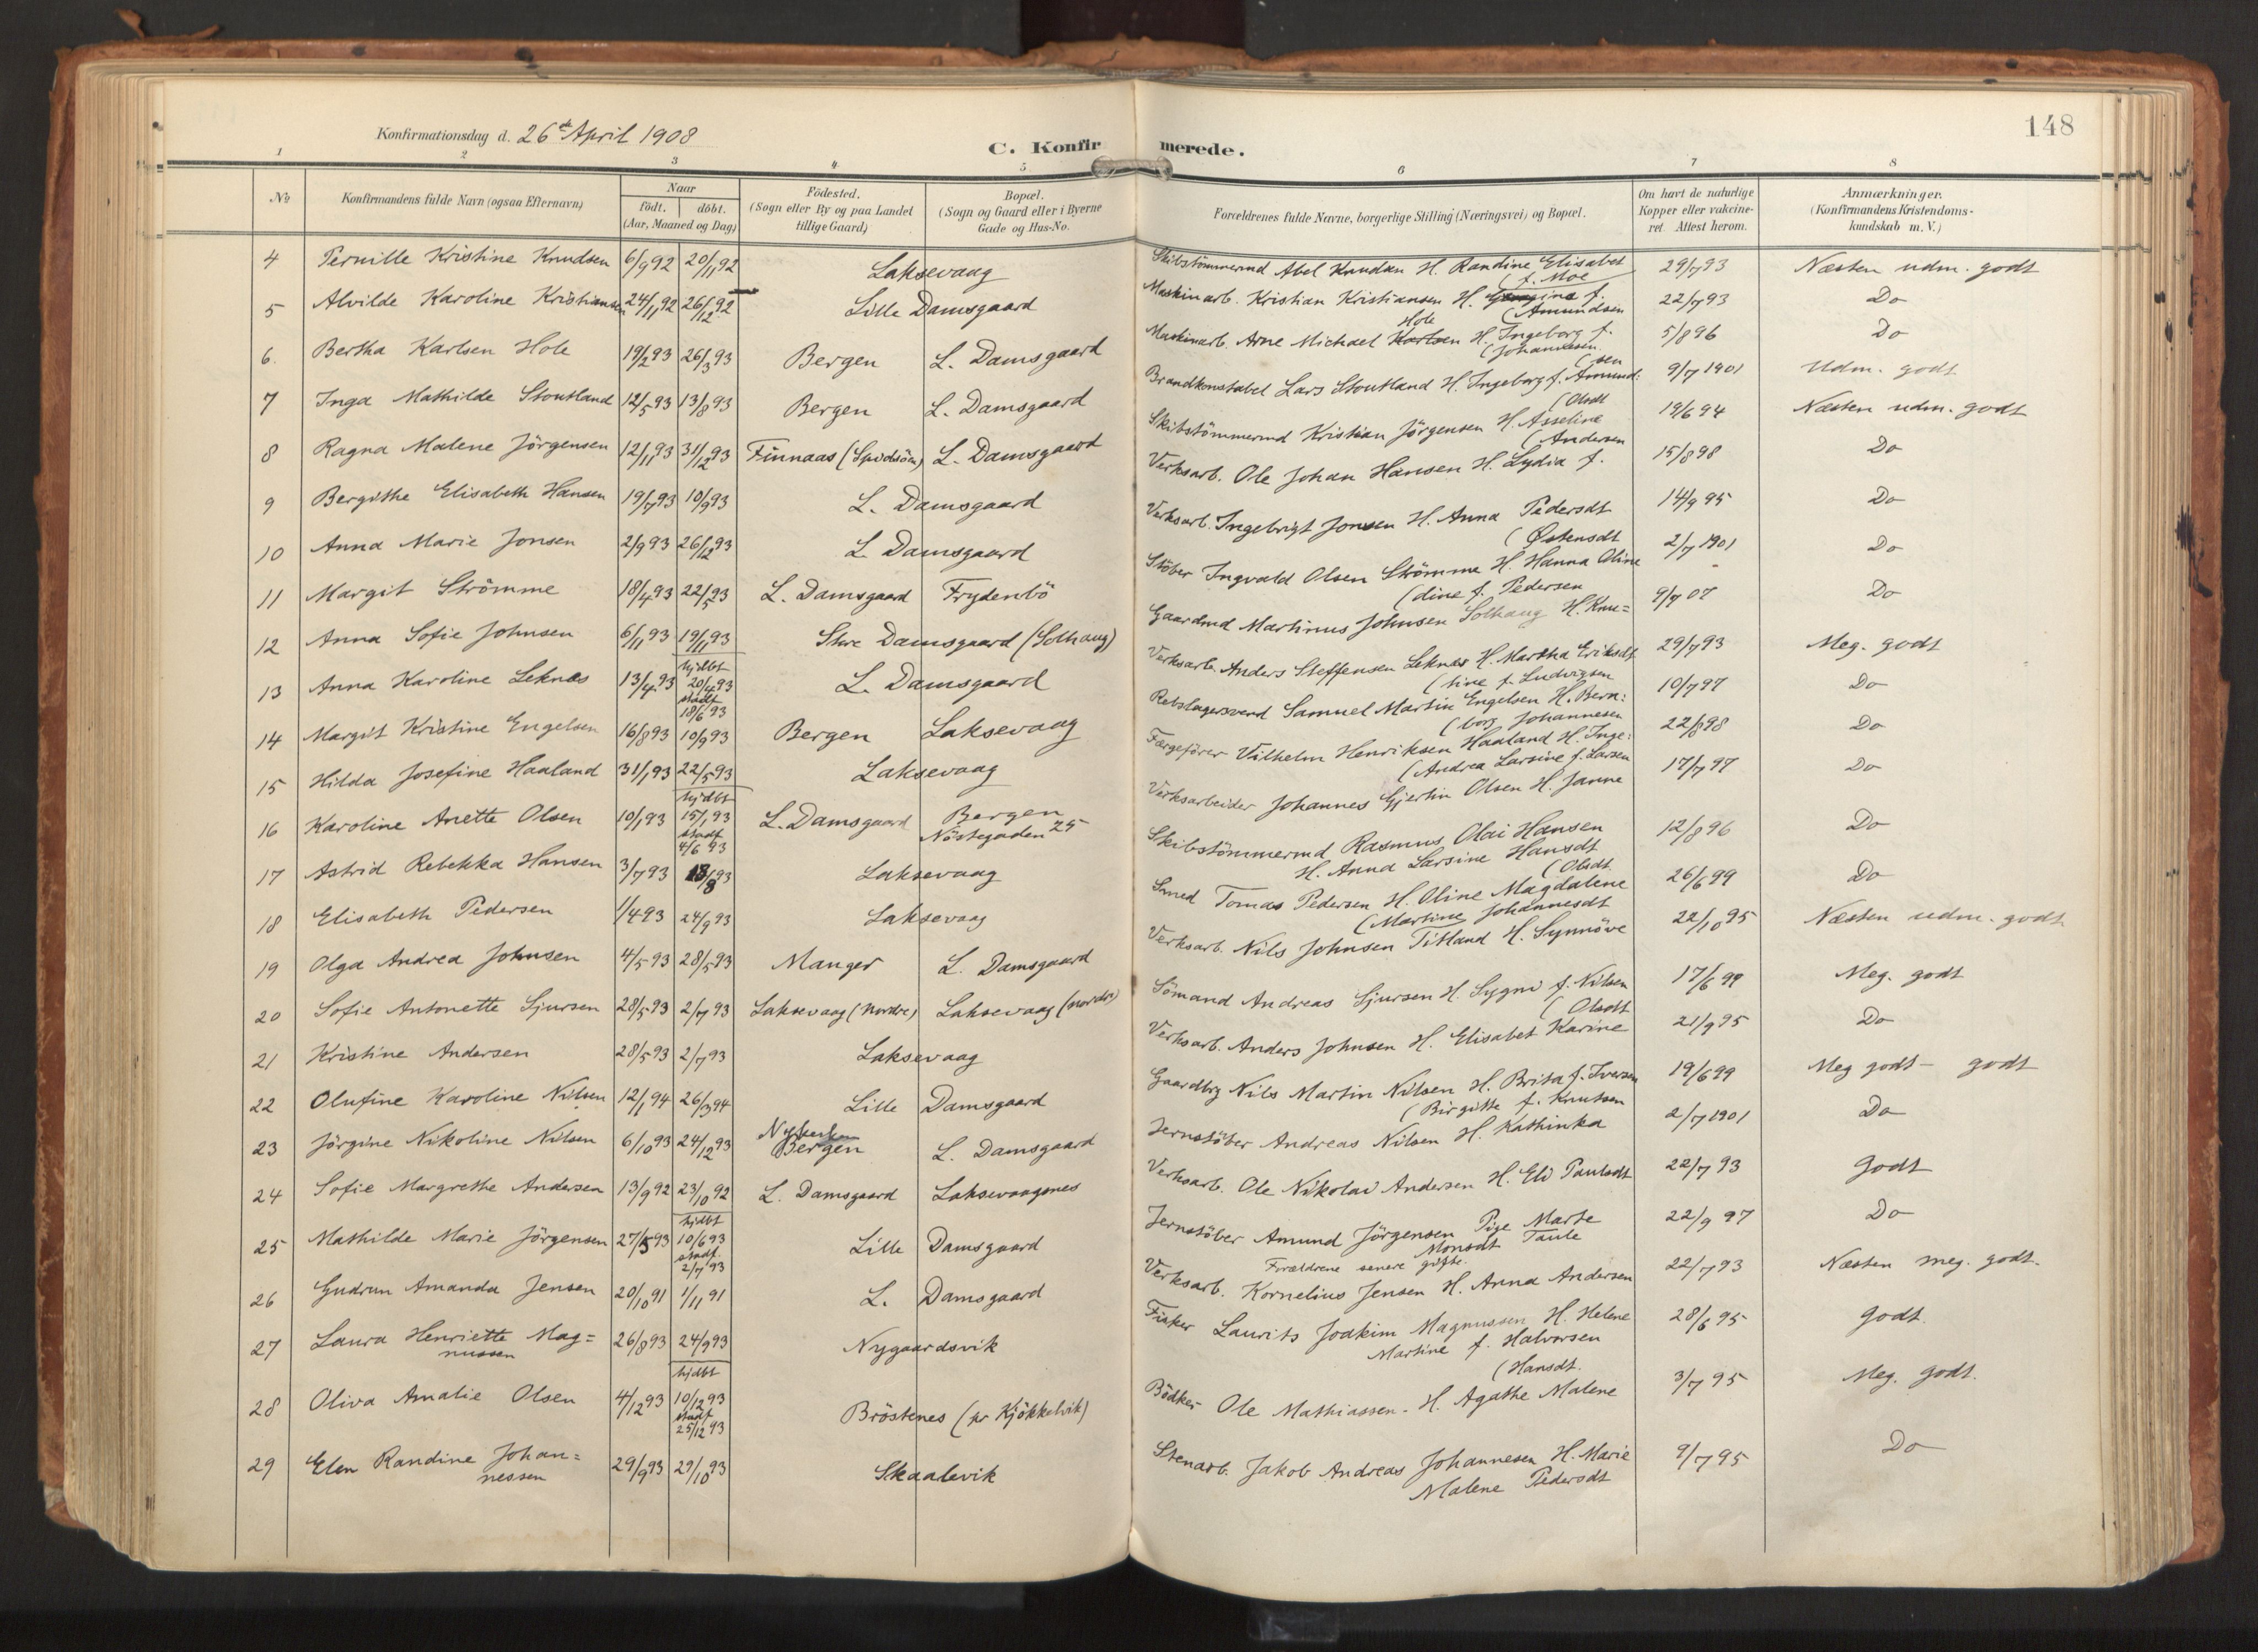 148
Konfirmationsdag d. 26de April 1908
C. Konfirmerede.
1 2 3 4 5 6 7 8
No Konfirmandens fulde Navn (ogsaa Efternavn) Naar födt. döbt. (Aar, Maaned og Dag) Födested. (Sogn eller By og paa Landet tillige Gaard) Bopæl. (Sogn og Gaard eller i Byerne Gade og Hus-No. Forældrenes fulde Navne, borgerlige Stilling (Næringsvei) og Bopæl. Om havt de naturlige Kopper eller vakcineret. Attest herom. Anmærkninger. (Konfirmandens Kristendomskundskab m. V.)
4 Pernille Kristine Knudsen 6/9 92 20/11 92 Laksevaag Skibstömmermd Abel Knudsen H. Randine Elisabet (f. Moe 29/7 93 Næsten udm. godt
5 Alvilde Karoline Kristiansen 24/11 92 26/12 92 Lille Damsgaard Maskinarb. Kristian Kristiansen H. Georgine f. (Amundsen 22/7 93 Do
6. Bertha Karlsen Hole 19/2 93 26/3 93 Bergen L. Damsgaard Maskinarb. Arne Michael Karlsen Hole H. Ingeborg f. (Johannesen 5/8 96 Do
7 Inga Mathilde Stoutland 12/5 93 13/8 93 Bergen L. Damsgaard Brandkonstabel Lars Stoutland H. Ingeborg f. Amund: (sen 9/7 1901 Udm. godt
8 Ragna Malene Jörgensen 12/11 93 31/12 93 Finnaas L. Damsgaard Skibstömmermd Kristian Jörgensen H. Asseline (Olsdt 19/6 94 Næsten udm. godt
9 Bergithe Elisabeth Hansen 19/7 93 10/9 93 L. Damsgaard Verksarb. Ole Johan Hansen H. Lydia f. (Andersen 15/8 98 Do
10 Anna Marie Jonsen 2/9 93 26/12 93 L. Damsgaard Verksarb. Ingebrigt Jonsen H. Anna Pedersdt 14/9 95 Do
11 Margit Strömme 18/4 93 22/5 93 L. Damsgaard Frydenbö Stöber Ingvald Olsen Strömme H. Hanna Oline (Östensdt 2/7 1901 Do
12 Anna Sofie Johnsen 6/1 93 19/11 93 Store Damsgaard (Solhaug) Gaardmd Martinus Johnsen Solhaug H. Knu= (dine f. Pedersen 9/7 07 Do
13 Anna Karoline Leknes 13/4 93 hjdbt 20/4 93 stadf 18/6 93 L. Damsgaard Verksarb. Anders Steffensen Leknes H. Martha Eriksdt 29/7 93 Meg. godt
14 Margit Kristine Engelsen 16/8 93 10/9 93 Bergen Laksevaag Rebslagersvend Samuel Martin Engelsen H. Bern: (tine f. Ludvigsen 10/7 97 Do
15 Hilda Josefine Haaland 31/1 93 22/5 93 Laksevaag Færgefører Vilhelm Henriksen Haaland H. Inge: (borg Johannesen 22/8 98 Do
16 Karoline Anette Olsen 10/1 93 hjdbt 15/1 93 stadf 4/6 93 L. Damsgaard Bergen Nöstegaden 25 Verksarbeider Johannes Gjertin Olsen H. Janne (Andrea Larsine f. Larsen 17/7 97 Do
17 Astrid Rebekka Hansen 3/7 93 13/8 93 Laksevaag Skibstömmermd Rasmus Olai Hansen H. Anna Larsine Hansdt 12/8 96 Do
18 Elisabeth Pedersen 1/4 93 24/9 93 Laksevaag Smed Tomas Pedersen H. Oline Magdalene (Olsdt 26/6 99 Do
19 Olga Andrea Johnsen 4/5 93 28/5 93 Manger L. Damsgaard Verksarb. Nils Johnsen Titland H. Synnöve (Martine Johannesdt 22/10 95 Næsten udm. godt
20 Sofie Antonette Sjursen 28/5 93 2/7 93 Laksevaag (nordre) Laksevaag (nordre) Sömand Andreas Sjursen H. Sygni f. Nilsen 17/6 99 Meg. godt
21 Kristine Andersen 28/5 93 2/7 93 Laksevaag Verksarb. Anders Johnsen H. Elisabet Karine (Olsdt 21/9 95 Do
22 Olufine Karoline Nilsen 12/1 94 26/3 94 Lille Damsgaard Gaardbrg Nils Martin Nilsen H. Brita f. Iversen 19/6 99 Meg godt - godt
23 Jörgine Nikoline Nilsen 6/10 93 24/12 93 Bergen L. Damsgaard Jernstöber Andreas Nilsen H. Kathinka (Birgitte f. Knutsen 2/7 1901 Do
24 Sofie Margrethe Andersen 13/9 92 23/10 92 L. Damsgaard Laksevaagsnes Verksarb. Ole Nikolai Andersen H. Eli Paulsdt 22/7 93 Godt
25 Mathilde Marie Jörgensen 27/5 93 hjdbt 10/6 93 stadf. 2/7 93 Lille Damsgaard Jernstöber Amund Jörgensen Pige Marte Monsdt Taule Forældrene senere gifte. 22/9 97 Do
26 Gudrun Amanda Jensen 20/10 91 1/11 91 L. Damsgaard Verksarb. Kornelius Jensen H. Anna Andersen 22/7 93 Næsten meg. godt.
27 Laura Henriette Mag= nussen 26/8 93 24/9 93 Nygaardsvik Fisker Laurits Joakim Magnussen H. Helene Martine f. Halvorsen 28/6 95 Godt.
28 Oliva Amalie Olsen 4/12 93 hjdbt 10/12 93 stadf 25/12 93 Bröstenes (pr Kjökkelvik) Bödker Ole Mathiassen - H. Agathe Malene (Hansdt. 3/7 95 Meg. godt.
29 Elen Randine Johan= nessen 29/9 93 29/10 93 Skaalevik Stenarb. Jakob Andreas Johannesen H. Marie Malene Pedersdt 9/7 95 Do